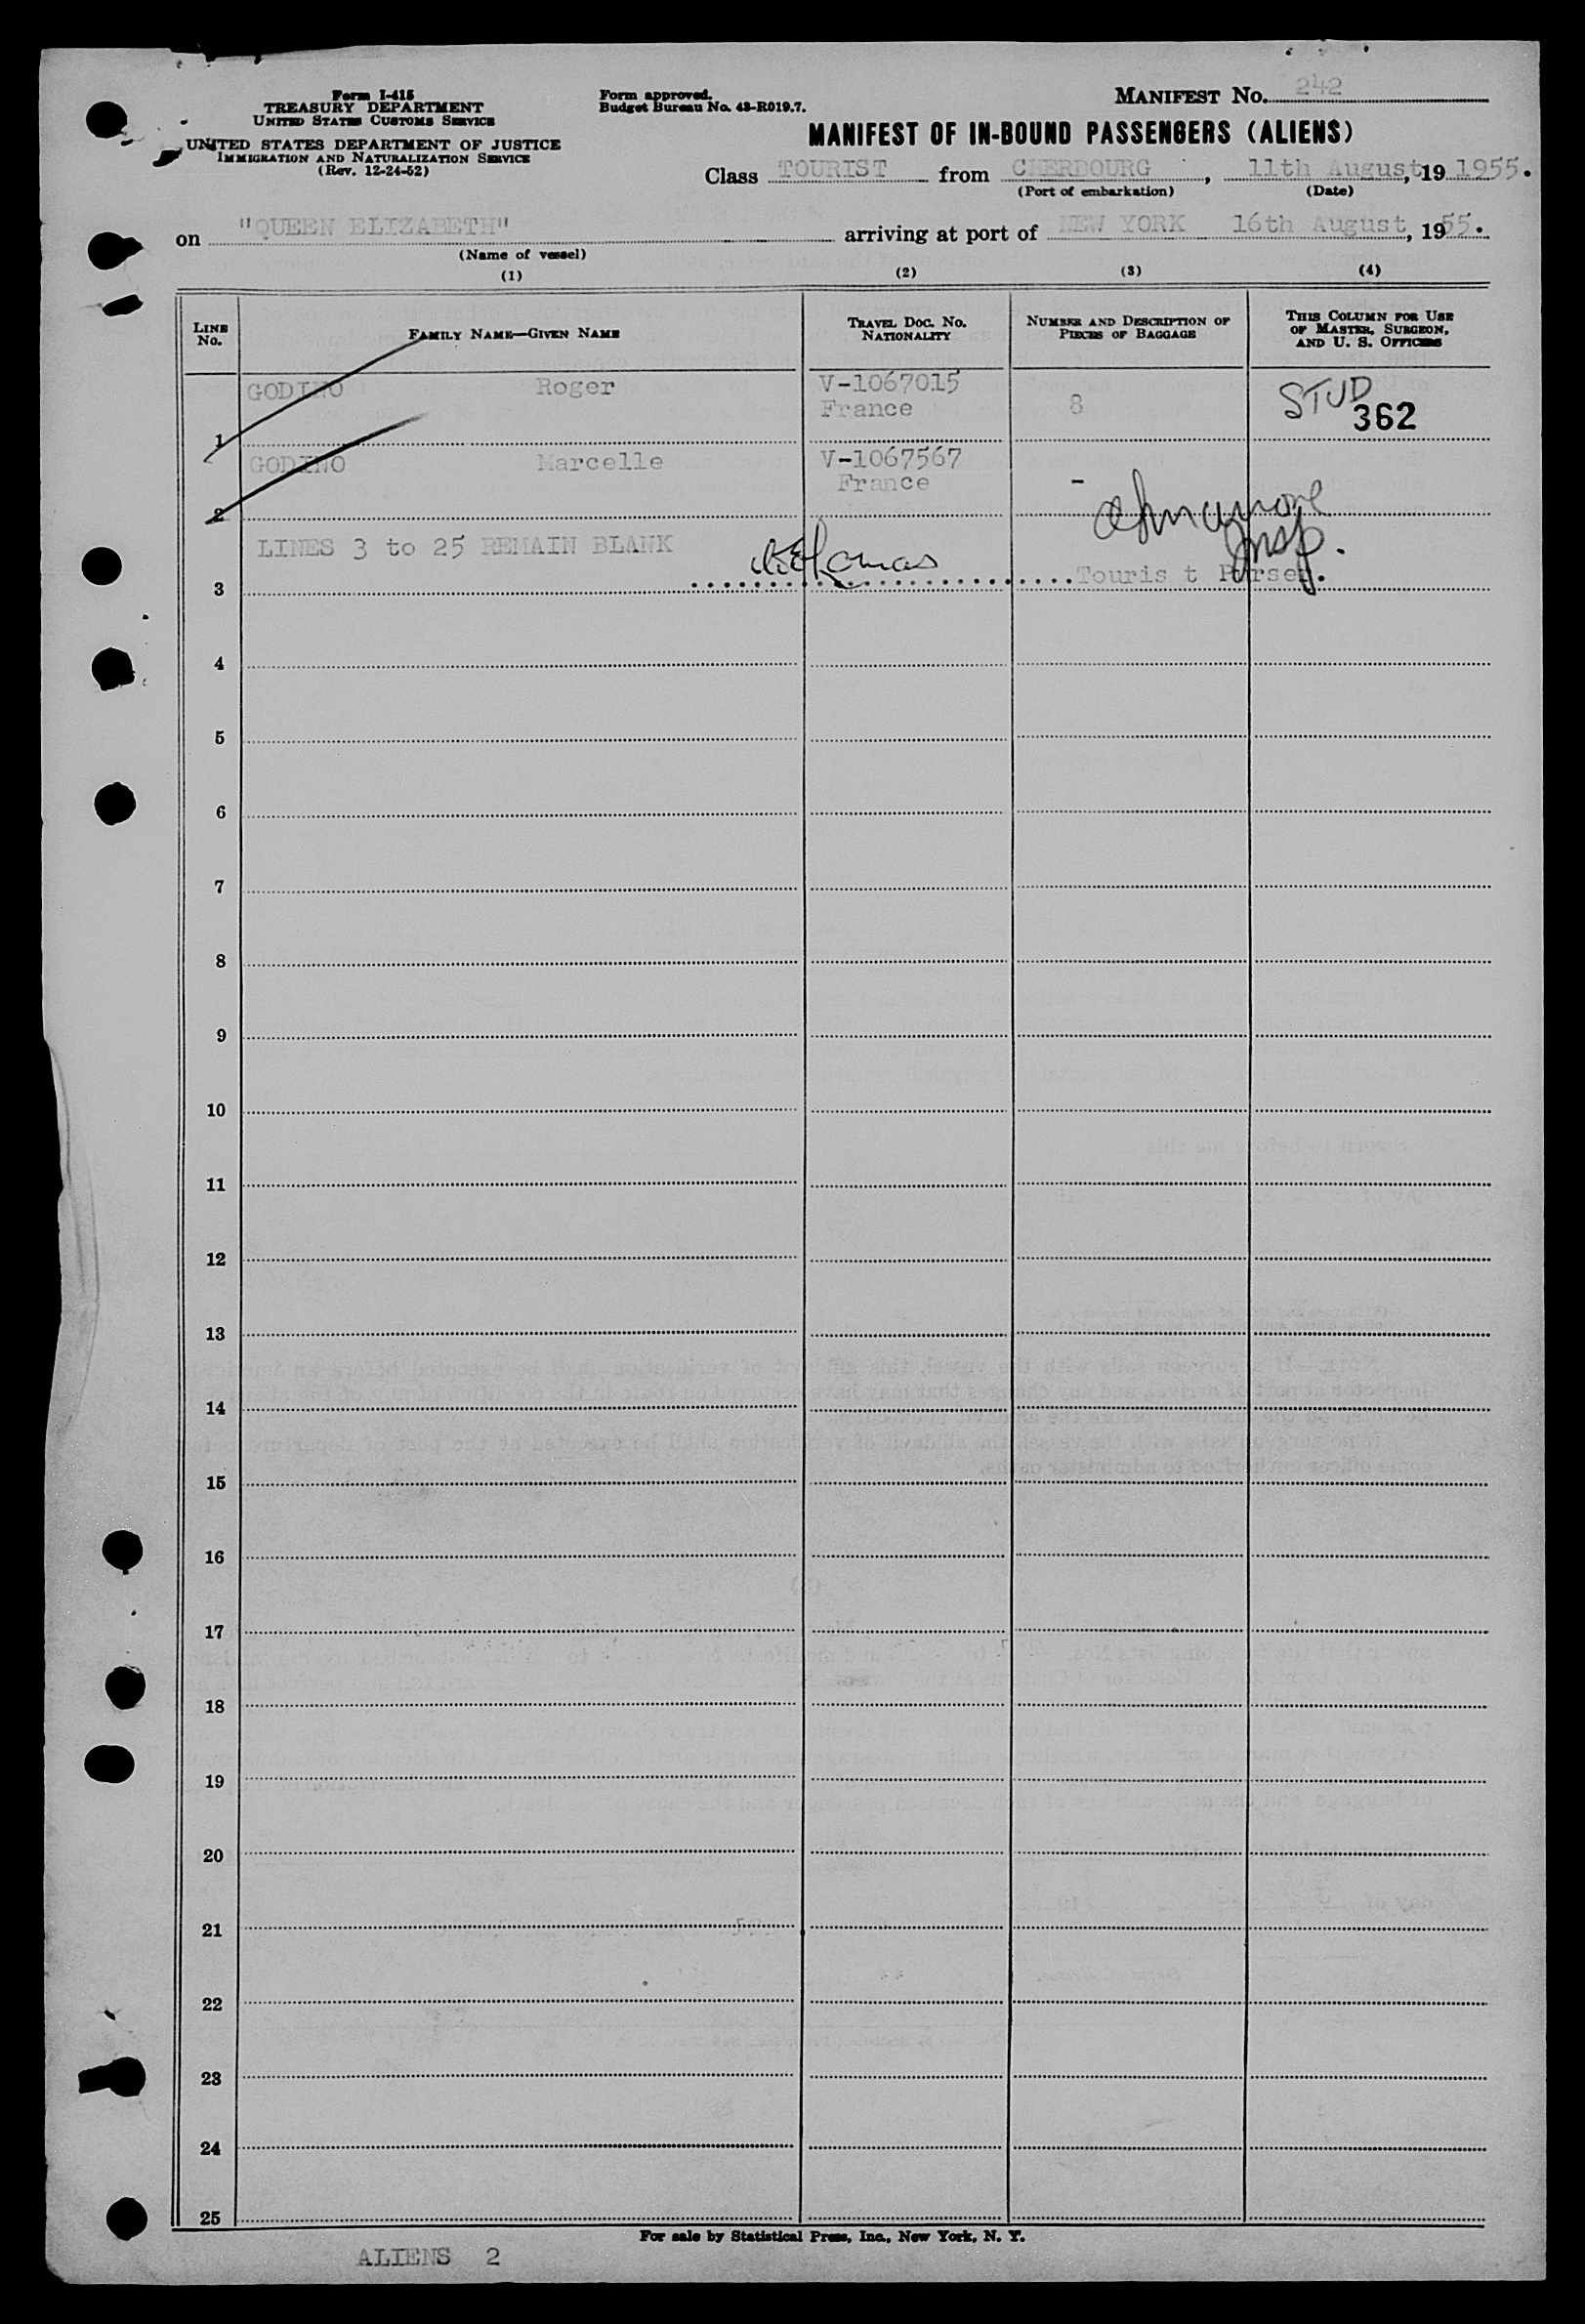 Form I-415
TREASURY DEPARTMENT
UNITED STATES CUSTOMS SERVICE
UNITED STATES DEPARTMENT OF JUSTICE
IMMIGRATION AND NATURALIZATION SERVICE
(Rev. 12-24-52)
Form approved.
Budget Bureau No. 43-R019.7.
MANIFEST No. 242
MANIFEST OF IN-BOUND PASSENGERS (ALIENS)
Class TOURIST from CHERBOURG, 11th August, 19 1955.
(Port of embarkation) (Date)
on "QUEEN ELIZABETH" arriving at port of NEW YORK 16th August, 1955.
(Name of vessel)
(1) (2) (3) (4)
LINE No. FAMILY NAME—GIVEN NAME TRAVEL DOC. No. NATIONALITY NUMBER AND DESCRIPTION OF PIECES OF BAGGAGE THIS COLUMN FOR USE OF MASTER, SURGEON, AND U. S. OFFICERS
1 GODINO Roger V-1067015 France 8 STUD 362
2 GODINO Marcelle V-1067567 France -
Insp.
3 LINES 3 to 25 REMAIN BLANK Touris t Purser.
4
5
6
7
8
9
10
11
12
13
14
15
16
17
18
19
20
21
22
23
24
25
For sale by Statistical Press, Inc., New York, N. Y.
ALIENS 2